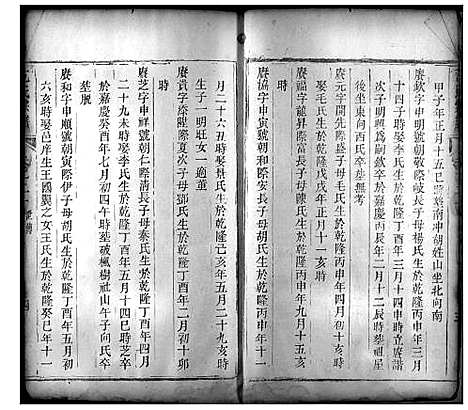 甲子年正月十五巳時葬南冲胡姓山坐北向南
賡欽字申明號朝敬際岐長子母楊氏生於乾隆丙申年三月
十四子時娶李氏生於乾隆丁酉年三月十四申時立賡諧
次子明興爲嗣欽卒於嘉慶丙
後坐東向西氏卒葬無考
賡元字開先際盛子母毛氏生於乾隆丙申年四月初六寅時
娶毛氏生於乾隆戊戌年正月十一亥時
賡韞字龍昇際富長子母陳氏生於乾隆丙申年九月十五亥
時
賡協字申濱號朝和際安長子母胡氏生於乾隆丙申年十一
月二十六丑時娶景氏生於乾隆己亥年五月二十九亥時
生子一明旺女一適董
賡貴字榮陞際夏次子母鄧氏生於乾隆丁酉年二月初十卯
時
賡芝字申祥號朝仁際清長子母秦氏生於乾隆丁酉年四月
二十九未時娶李氏生於乾隆丁酉年五月十四巳時芝卒
於嘉慶癸酉年七月初四午時葬破楓樹社山子午向氏卒
葬
賡和字申順號朝寅際伊子母胡氏生於乾隆丁酉年五月初
六亥時娶邑庠生王國興之女王氏生於乾隆癸巳年十一